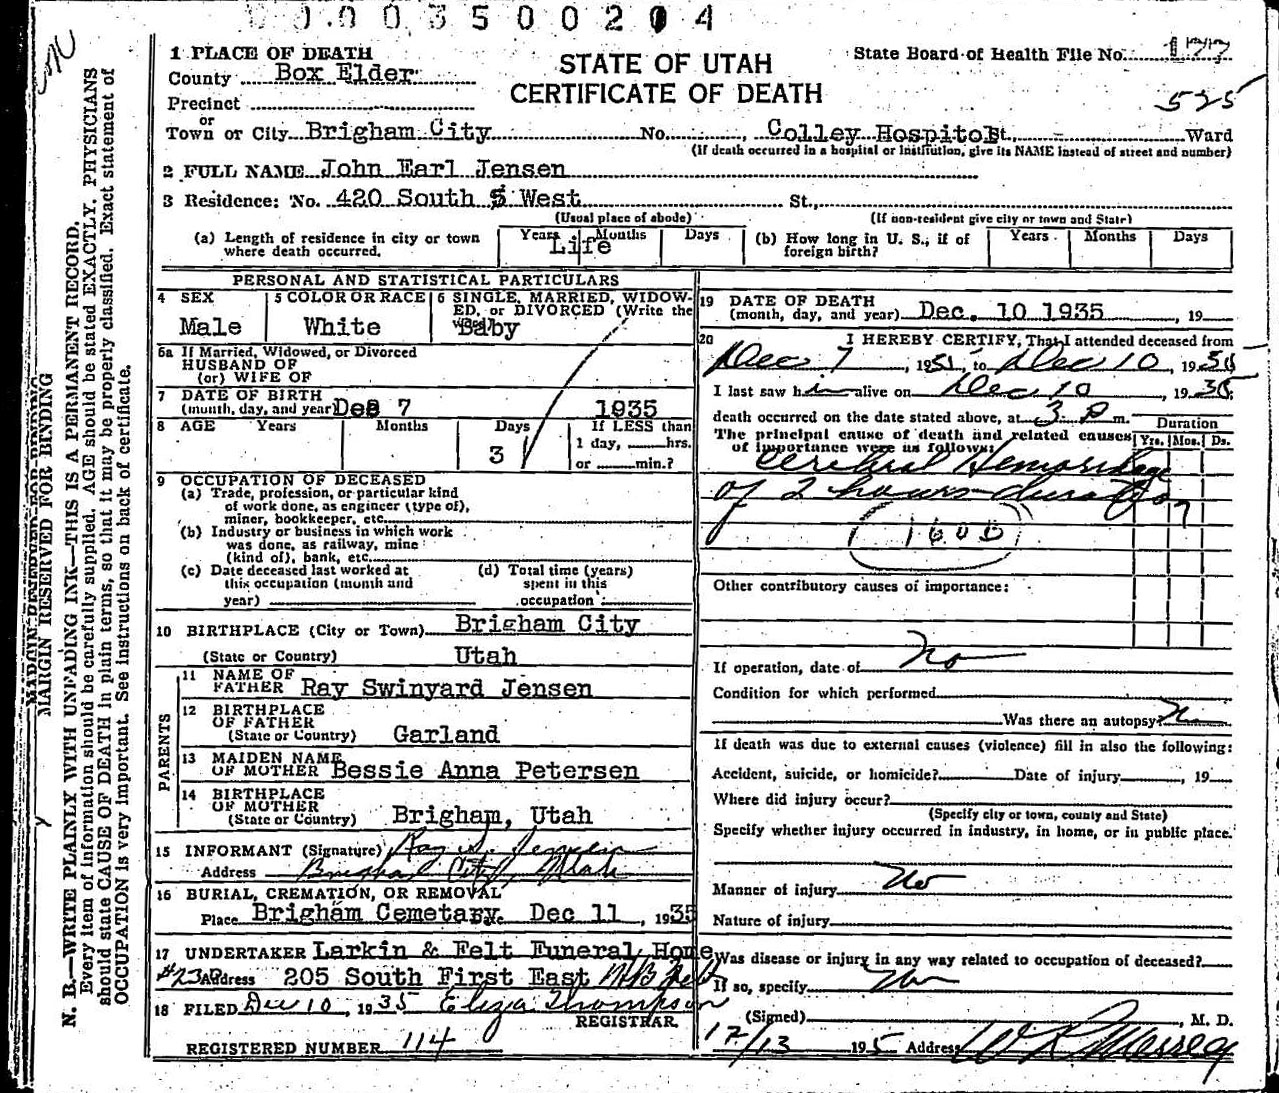 003500204
1 PLACE OF DEATH
County Box Elder
STATE OF UTAH
CERTIFICATE OF DEATH
State Board of Health File No. 177
525
Precinct
or
Town or City Brigham City No. , Colley Hospital St., Ward
(If death occurred in a hospital or institution, give its NAME instead of street and number)
2 FULL NAME John Earl Jensen
3 Residence: No. 420 South 5 West St.,
(Usual place of abode) (If non-resident give city or town and State)
(a) Length of residence in city or town where death occurred. Years Months Days Life
(b) How long in U. S., if of foreign birth? Years Months Days
PERSONAL AND STATISTICAL PARTICULARS
4 SEX Male
5 COLOR OR RACE White
6 SINGLE, MARRIED, WIDOW-
ED, or DIVORCED (Write the
Baby
6a If Married, Widowed, or Divorced
HUSBAND OF
(or) WIFE OF
7 DATE OF BIRTH
(month, day, and year) Dec 7 1935
8 AGE Years Months Days 3 If LESS than
1 day, hrs.
or min.?
9 OCCUPATION OF DECEASED
(a) Trade, profession, or particular kind
of work done, as engineer (type of),
miner, bookkeeper, etc.
(b) Industry or business in which work
was done, as railway, mine
(kind of), bank, etc.
(c) Date deceased last worked at
this occupation (month and
year)
(d) Total time (years)
spent in this
occupation
10 BIRTHPLACE (City or Town) Brigham City
(State or Country) Utah
PARENTS
11 NAME OF
FATHER Ray Swinyard Jensen
12 BIRTHPLACE
OF FATHER
(State or Country) Garland
13 MAIDEN NAME
OF MOTHER Bessie Anna Petersen
14 BIRTHPLACE
OF MOTHER
(State or Country) Brigham, Utah
15 INFORMANT (Signature) Ray S. Jensen
Address Brigham City, Utah
16 BURIAL, CREMATION, OR REMOVAL
Place Brigham Cemetary Dec 11, 1935
17 UNDERTAKER Larkin & Felt Funeral Home
#230 Address 205 South First East N B Felt
18 FILED Dec 10, 1935 Eliza Thompson
REGISTRAR.
REGISTERED NUMBER 114
19 DATE OF DEATH
(month, day, and year) Dec. 10 1935, 19
20 I HEREBY CERTIFY, That I attended deceased from
Dec 7, 1935, to Dec 10, 1935
I last saw him alive on Dec 10, 1935;
death occurred on the date stated above, at 3 P m.
The principal cause of death and related causes
of importance were as follows:
Duration
Yrs. Mos. Ds.
Cerebral Hemorrhage
of 2 hours duration
160b
Other contributory causes of importance:
If operation, date of no
Condition for which performed
Was there an autopsy? no
If death was due to external causes (violence) fill in also the following:
Accident, suicide, or homicide? Date of injury , 19
Where did injury occur?
(Specify city or town, county and State)
Specify whether injury occurred in industry, in home, or in public place.
Manner of injury no
Nature of injury
Was disease or injury in any way related to occupation of deceased?
If so, specify no
(Signed) , M. D.
12/13 195 Address W R Merrell
MARGIN RESERVED FOR BINDING
N. B.—WRITE PLAINLY WITH UNFADING INK—THIS IS A PERMANENT RECORD.
Every item of information should be carefully supplied. AGE should be stated EXACTLY. PHYSICIANS
should state CAUSE OF DEATH in plain terms, so that it may be properly classified. Exact statement of
OCCUPATION is very important. See instructions on back of certificate.